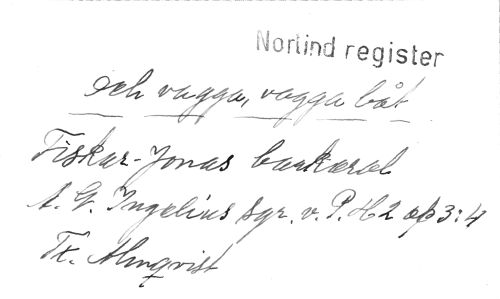 Norlind register
och vagga, vagga båt
Fiskar-Jonas barkaról
A. G. Ingelius Sgr. v. P. H2 op 3:4
Tx. Almqvist